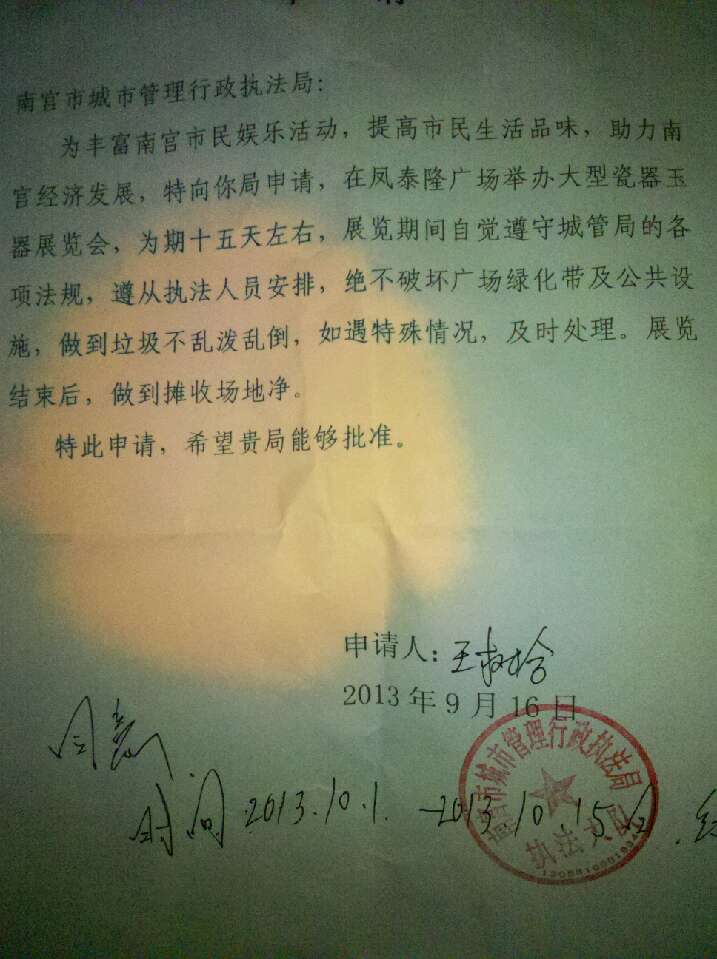 南宫市城市管理行政执法局：
为丰富南宫市民娱乐活动，提高市民生活品味，助力南
宫经济发展，特向你局申请，在凤泰隆广场举办大型瓷器玉
器展览会，为期十五天左右，展览期间自觉遵守城管局的各
项法规，遵从执法人员安排，绝不破坏广场绿化带及公共设
施，做到垃圾不乱泼乱倒，如遇特殊情况，及时处理。展览
结束后，做到摊收场地净。
特此申请，希望贵局能够批准。
申请人：王树
2013年9月16日
同意
时间2013.10.1.-2013.10.15
南宫市城市管理行政执法局
执法专用